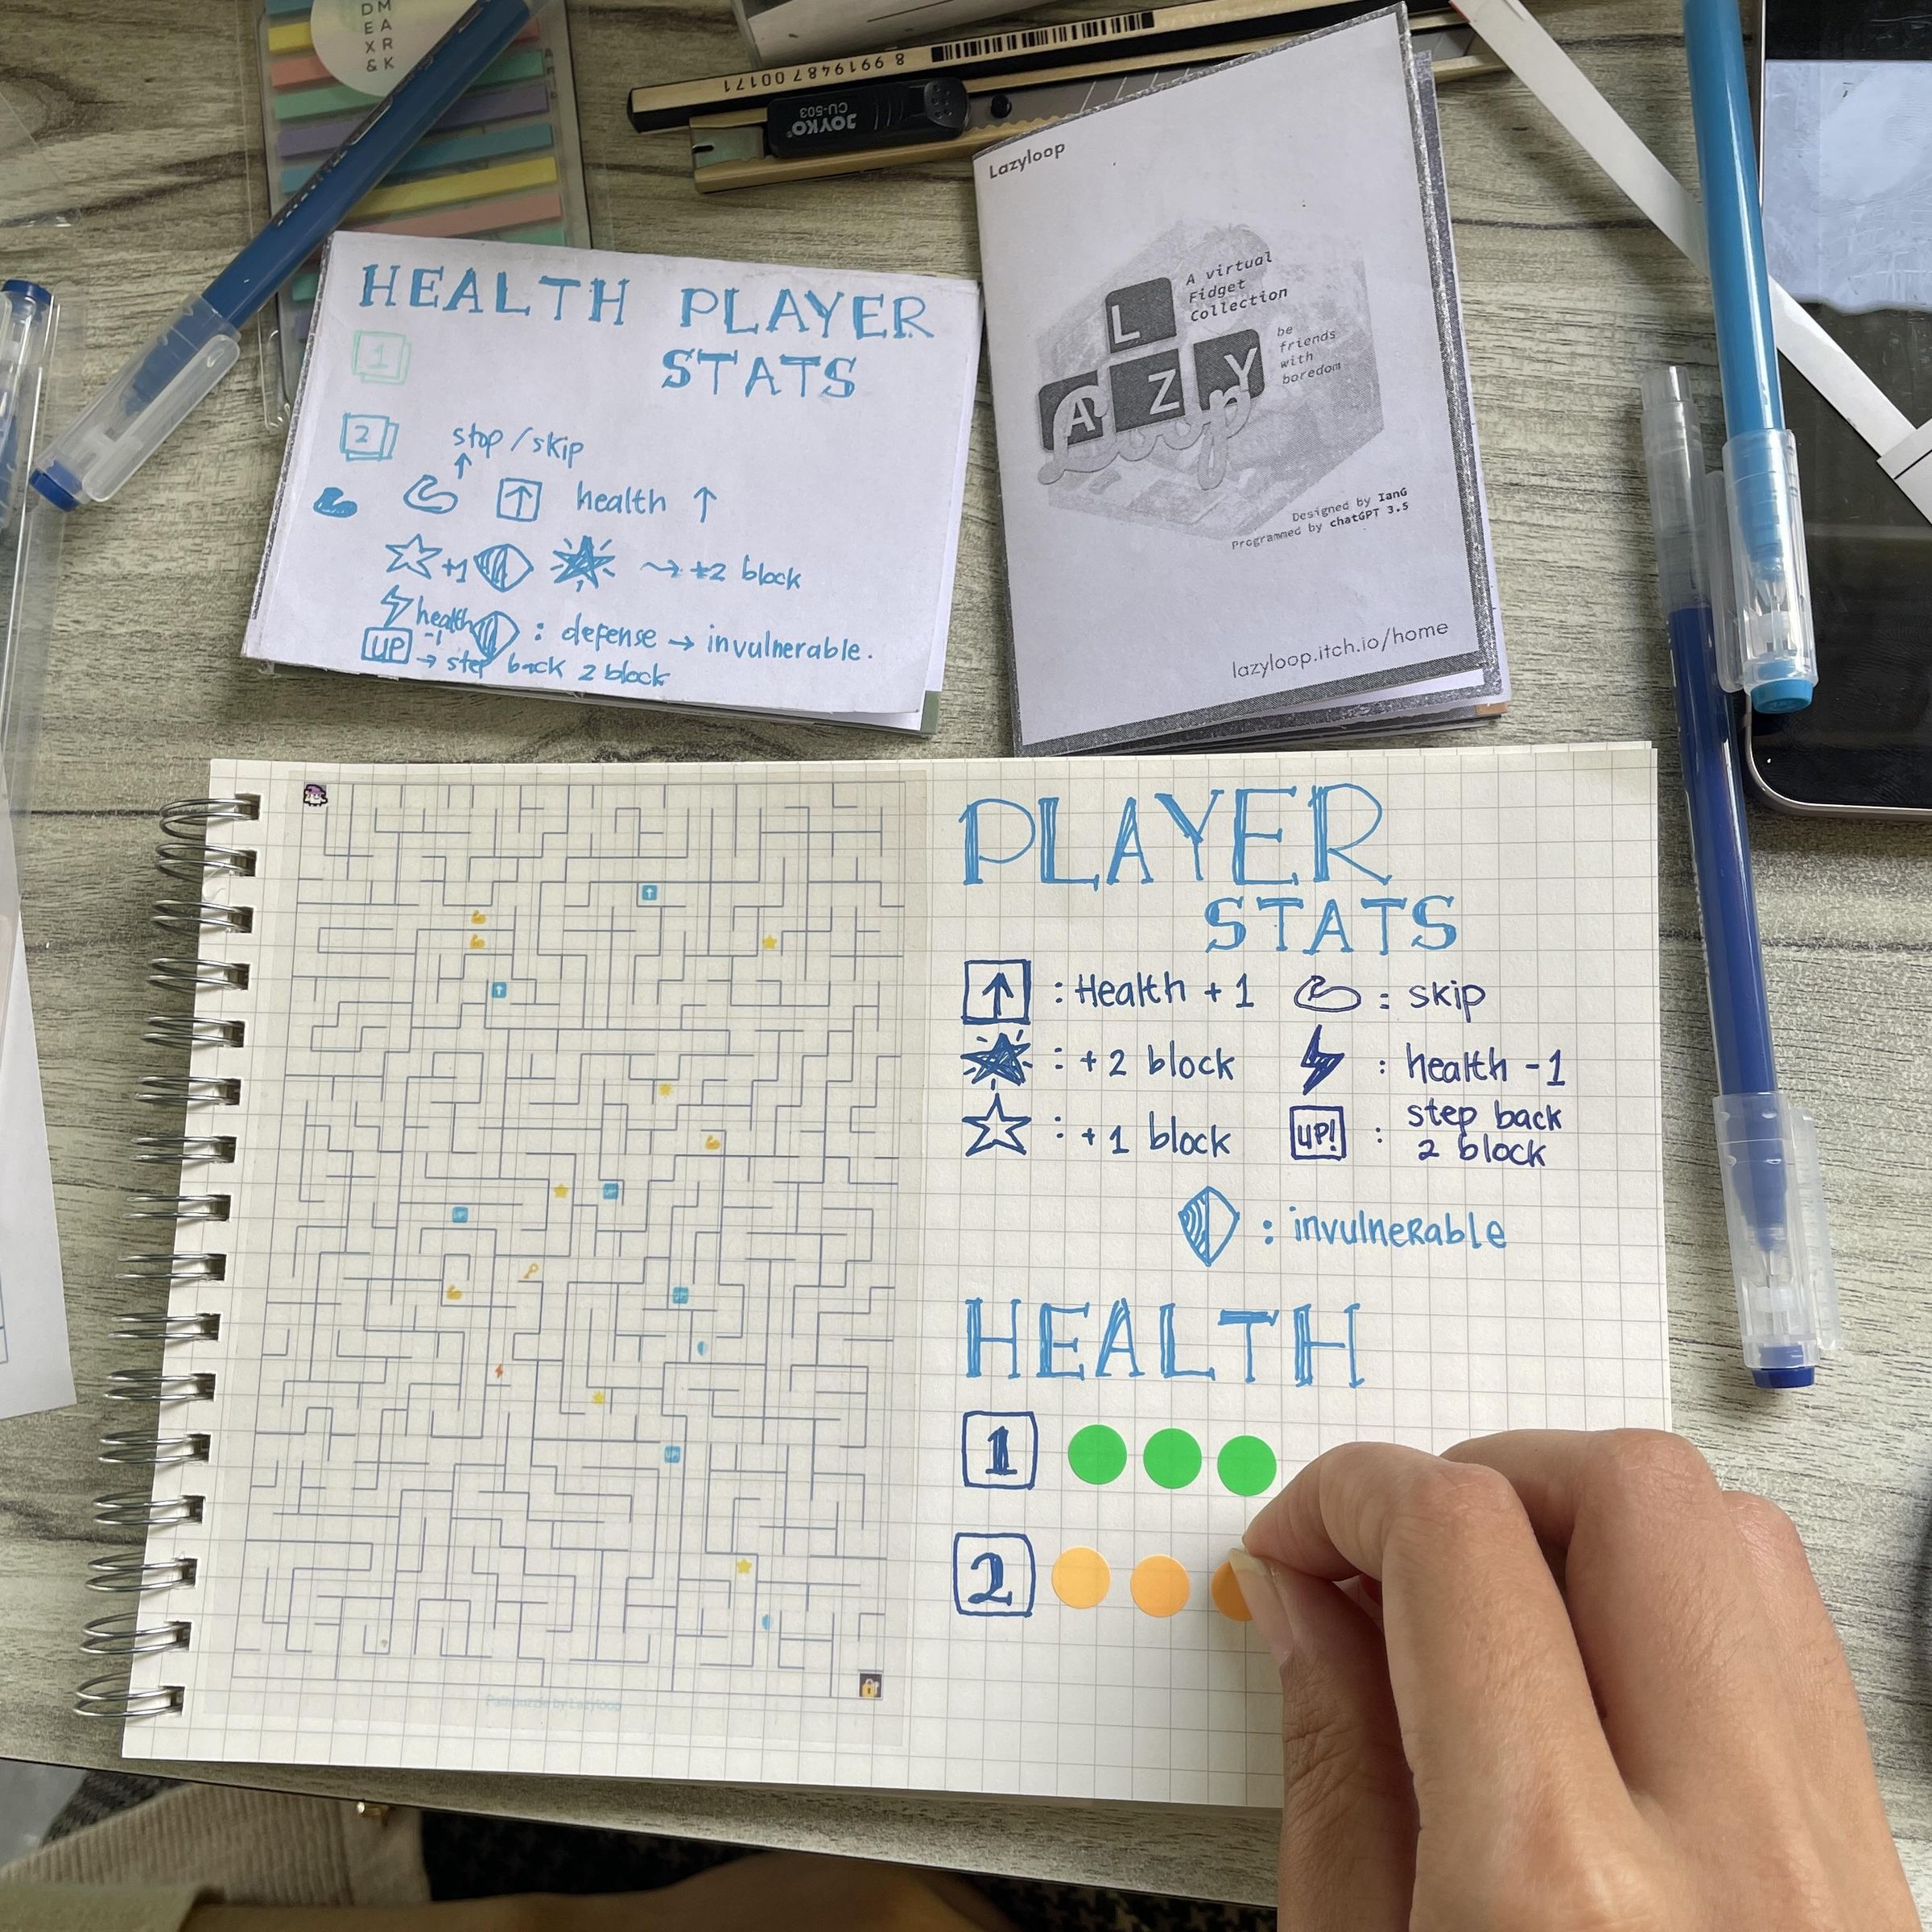 DM
EA
XR
&K
8 991948700171
JOYKO
CU-503
HEALTH PLAYER
STATS
1
2
stop/skip
health ↑
+1
→ +2 block
health -1
: defense → invulnerable.
UP → step back 2 block
Lazyloop
L
AZY
Loop
A virtual
Fidget
Collection
be
friends
with
boredom
Designed by IanG
Programmed by chatGPT 3.5
lazyloop.itch.io/home
PLAYER
STATS
↑ : Health +1
: skip
: +2 block
: health -1
: +1 block
UP! : step back
2 block
: invulnerable
HEALTH
1
2